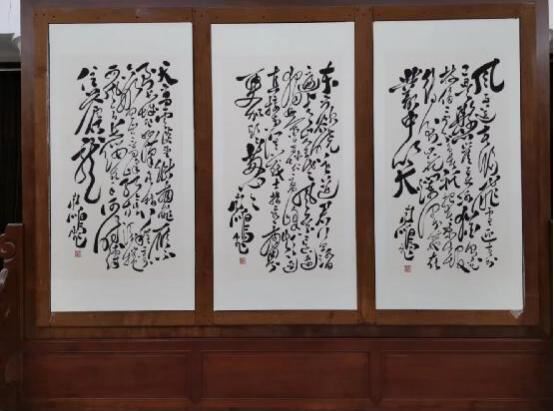 风雨送春归飞雪迎春到
已是悬崖百丈冰犹有花枝俏
俏也不争春只把春来报
待到山花烂漫时她在
丛中笑
东方欲晓莫道君行早
踏遍青山人未老风景这边
独好会昌城外高峰颠连
直接东溟战士指看南粤
更加郁郁葱葱
天高云淡望断南飞雁不
到长城非好汉屈指行程
二万六盘山上高峰红旗
漫卷西风今日长缨在手何时缚
住苍龙